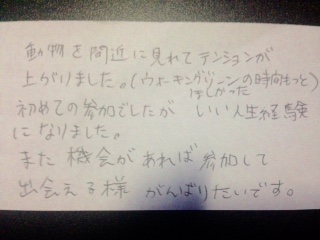 動物を間近に見れてテンションが
上がりました。(ウォーキングゾーンの時間もっと
ほしかった)
初めての参加でしたが いい人生経験
になりました。
また機会があれば参加して
出会える様 がんばりたいです。